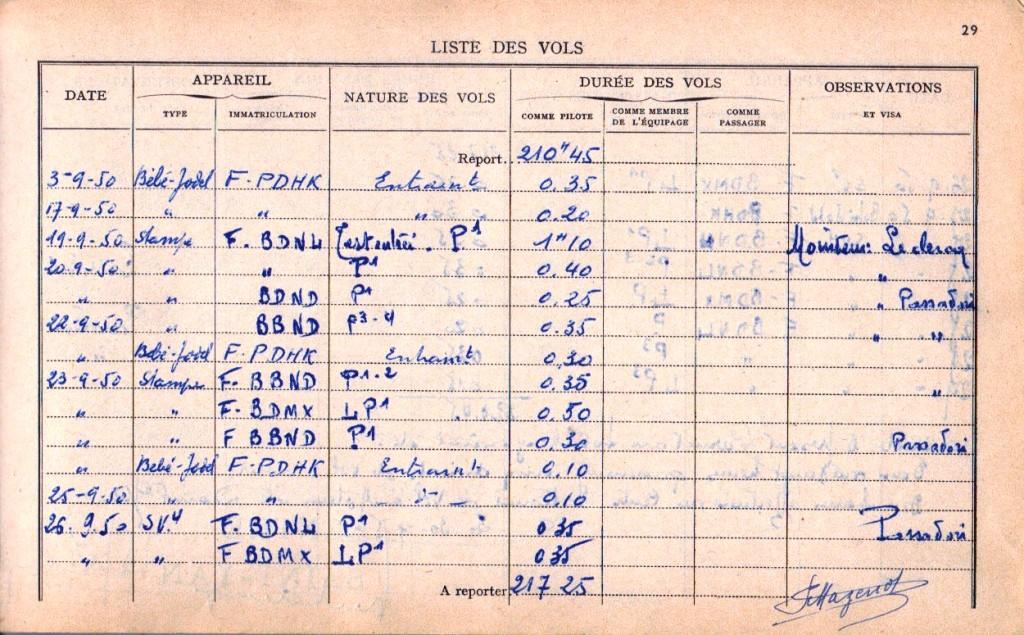 29
LISTE DES VOLS
DATE APPAREIL NATURE DES VOLS DURÉE DES VOLS OBSERVATIONS ET VISA
TYPE IMMATRICULATION COMME PILOTE COMME MEMBRE DE L'ÉQUIPAGE COMME PASSAGER
Report. 210h45
3-9-50 Bébé-Jodel F-PDHK Entraint 0.35
17-9-50 " " " 0.20
19-9-50 Stampe F. BDNL P1 1h10 Moniteur:
20-9-50 " " P1 0.40 "
" " BDND P1 0.25 " Passadori
22-9-50 " BBND P3-4 0.35 " "
" Bébé-Jodel F-PDHK Entraint 0.30
23-9-50 Stampe F. BBND P1-2 0.35 "
" " F. BDMX LP1 0.50
" " F BBND P1 0.30 Passadori
" Bébé-Jodel F-PDHK Entraint 0.10
25-9-50 " " 0.10
26.9.50 SV.4 F. BDNL P1 0 35 Passadori
" " F BDMX LP1 0 35
A reporter 217 25